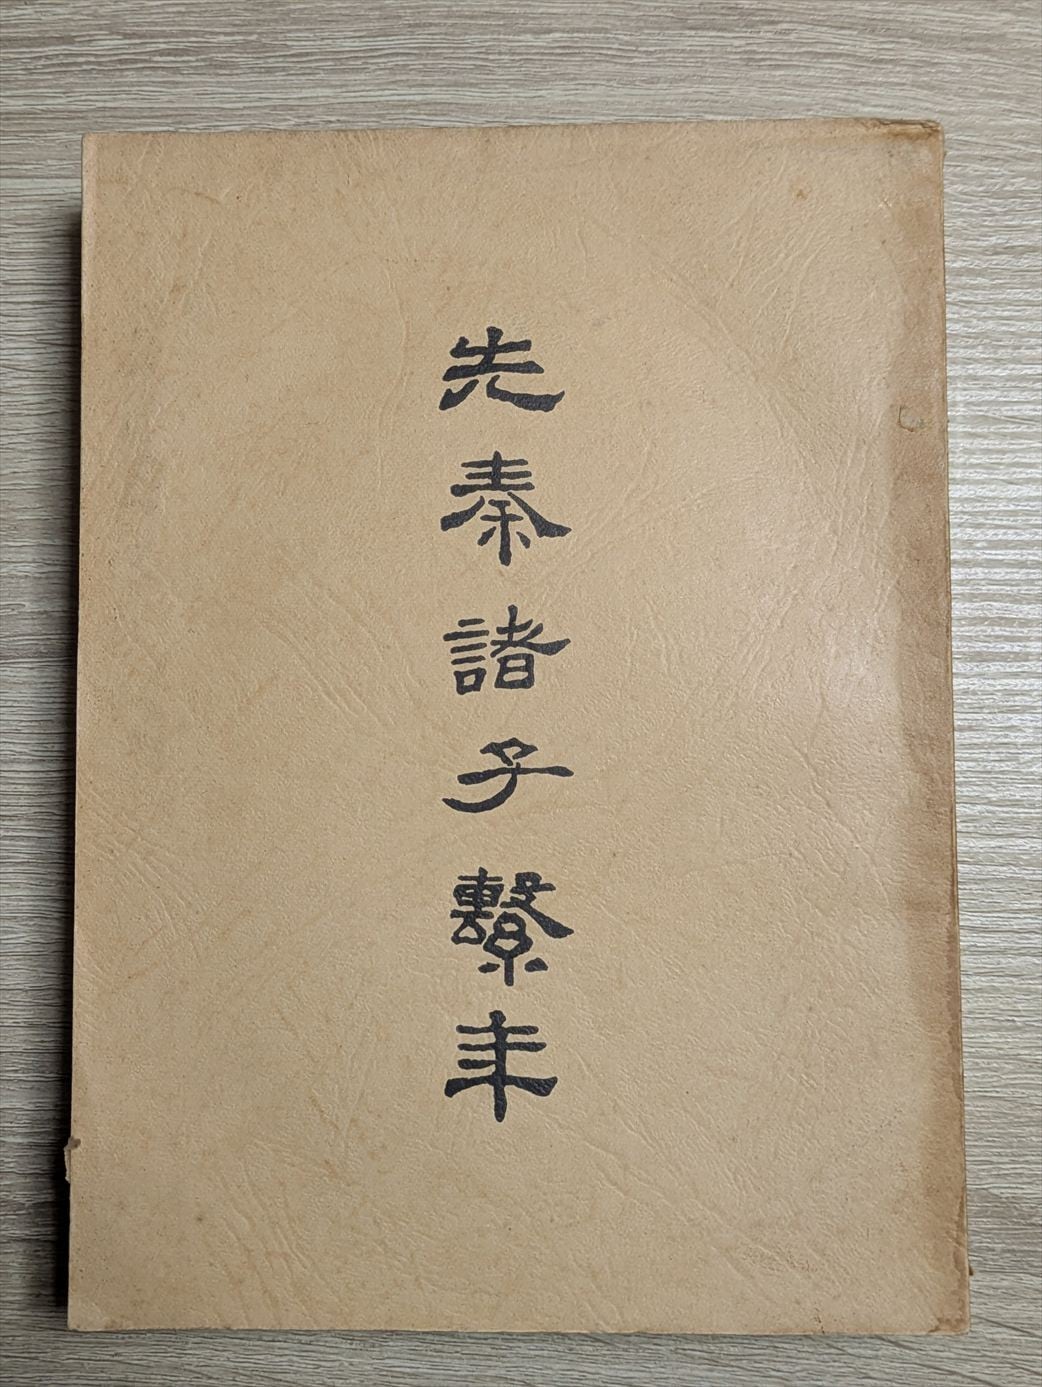 先秦諸子繫年